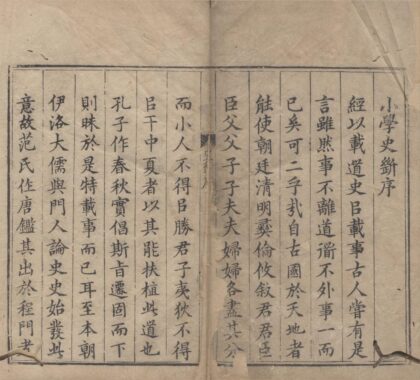 小學史斷序
經以載道史㠯載事古人嘗有是
言雖然事不離道衜不外事一而
已矣可二乎哉自古國於天地者
能使朝廷清明彞倫攸敘君君臣
臣父父子子夫夫婦婦各盡其分
而小人不得㠯勝君子夷狄不得
㠯干中夏者以其能扶植此道也
孔子作春秋實倡斯旨遷固而下
則昧於是特載事而已耳至本朝
伊洛大儒與門人論史史始發此
意故范氏作唐鑑其出於程門者